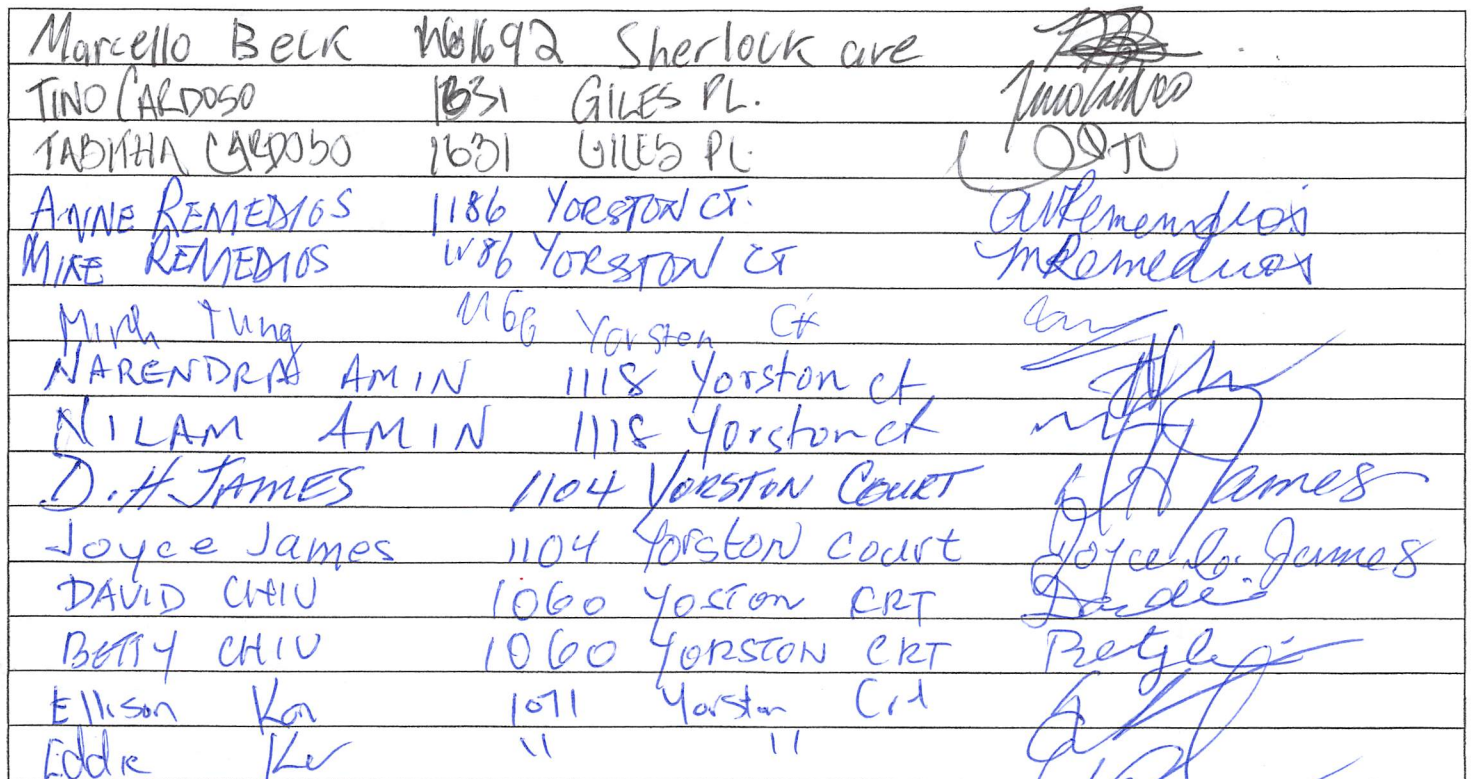 Marcello Beck 1692 Sherlock ave
TINO CARDOSO 1631 GILES PL.
TABITHA CARDOSO 1631 GILES PL.
ANNE REMEDIOS 1186 YORSTON CT. AVRemendios
MIKE REMEDIOS 1186 YORSTON CT MRemedios
Minh Tung 1166 Yorsten Ct
NARENDRA AMIN 1118 Yorston ct
NILAM AMIN 1118 Yorston ct
D.H JAMES 1104 YORSTON COURT James
Joyce James 1104 Yorston Court Joyce James
DAVID CHIU 1060 YOSTON CRT
BETTY CHIU 1060 YORSTON CRT
Ellison 1071 Yorston Crt
Eddie " "